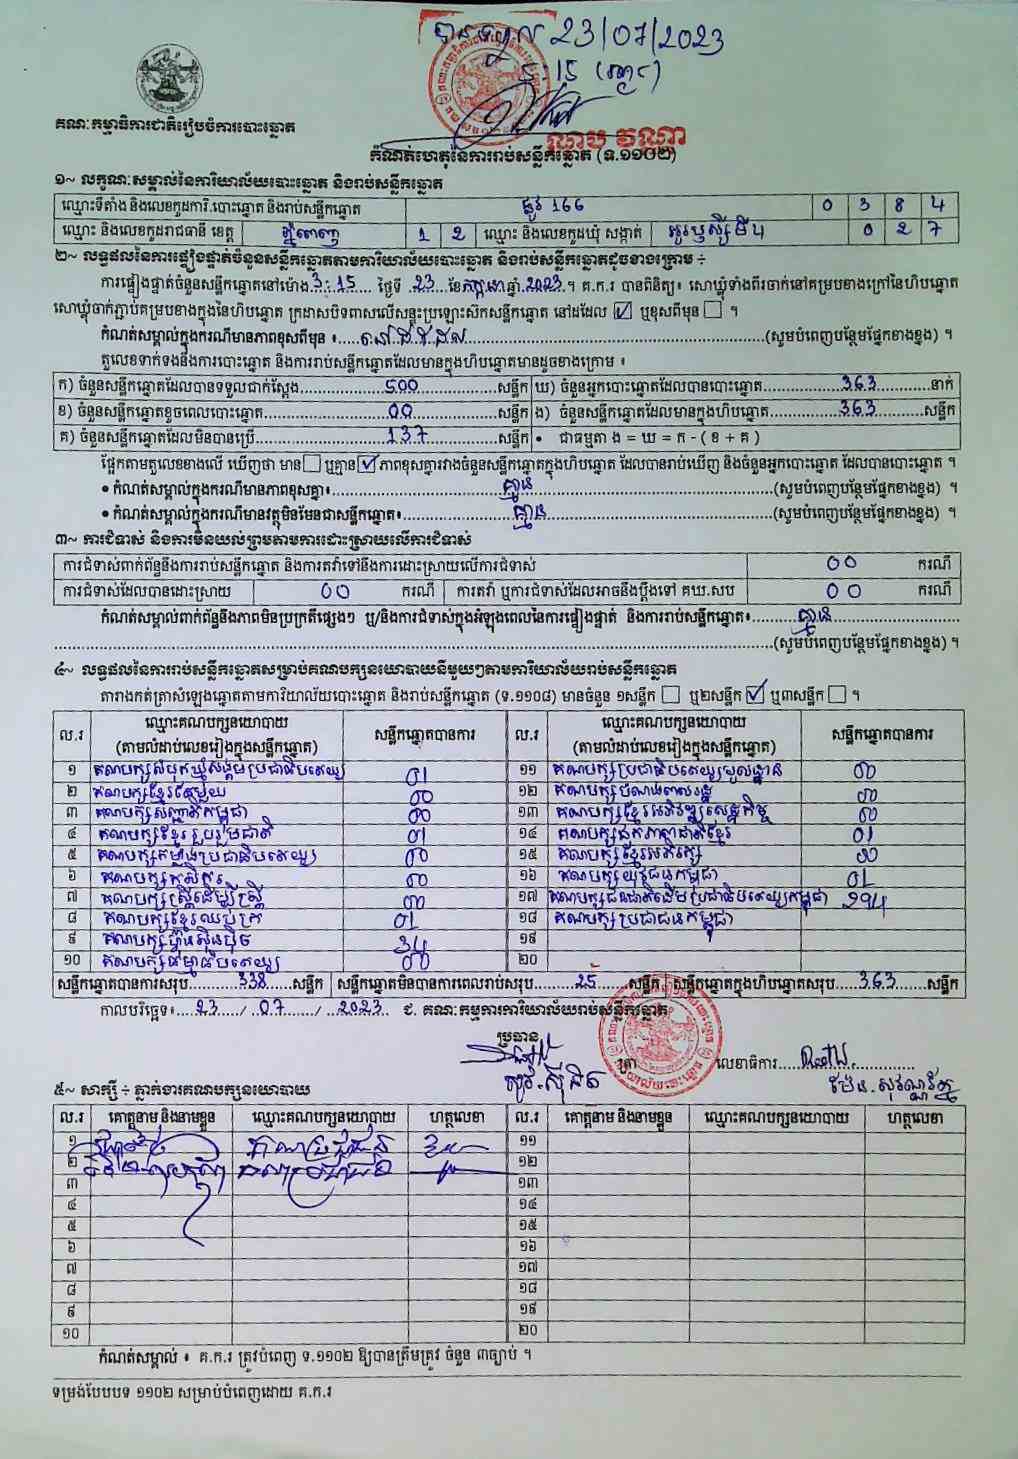 បានទទួល 23/07/2023
5:15 (ល្ងាច)
ណាប វណ្ណា
គណៈកម្មាធិការជាតិរៀបចំការបោះឆ្នោត
កំណត់ហេតុនៃការរាប់សន្លឹកឆ្នោត (ទ.១១០២)
១~ លក្ខណៈសម្គាល់នៃការិយាល័យបោះឆ្នោត និងរាប់សន្លឹកឆ្នោត
ឈ្មោះទីតាំង និងលេខកូដការិ.បោះឆ្នោត និងរាប់សន្លឹកឆ្នោត ផ្លូវ 166 0 3 8 4
ឈ្មោះ និងលេខកូដរាជធានី ខេត្ត ភ្នំពេញ 1 2 ឈ្មោះ និងលេខកូដឃុំ សង្កាត់ អូរឫស្សីទី៤ 0 2 7
២~ លទ្ធផលនៃការផ្ទៀងផ្ទាត់ចំនួនសន្លឹកឆ្នោតតាមការិយាល័យបោះឆ្នោត និងរាប់សន្លឹកឆ្នោតដូចខាងក្រោម ÷
ការផ្ទៀងផ្ទាត់ចំនួនសន្លឹកឆ្នោតនៅម៉ោង 3:15 ថ្ងៃទី 23 ខែ កក្កដា ឆ្នាំ 2023 ។ គ.ក.រ បានពិនិត្យ៖ សោឃ្លុំទាំងពីរចាក់នៅគម្របខាងក្រៅនៃហិបឆ្នោត
សោឃ្លុំចាក់ភ្ជាប់គម្របខាងក្នុងនៃហិបឆ្នោត ក្រដាសបិទពាសលើសន្ទះប្រឡោះស៊កសន្លឹកឆ្នោត នៅដដែល ☑ ឬខុសពីមុន ☐ ។
កំណត់សម្គាល់ក្នុងករណីមានភាពខុសពីមុន ៖ នៅដដែល (សូមបំពេញបន្ថែមផ្នែកខាងខ្នង) ។
តួលេខទាក់ទងនឹងការបោះឆ្នោត និងការរាប់សន្លឹកឆ្នោតដែលមានក្នុងហិបឆ្នោតមានដូចខាងក្រោម ៖
ក) ចំនួនសន្លឹកឆ្នោតដែលបានទទួលជាក់ស្តែង 500 សន្លឹក ឃ) ចំនួនអ្នកបោះឆ្នោតដែលបានបោះឆ្នោត 363 នាក់
ខ) ចំនួនសន្លឹកឆ្នោតខូចពេលបោះឆ្នោត 00 សន្លឹក ង) ចំនួនសន្លឹកឆ្នោតដែលមានក្នុងហិបឆ្នោត 363 សន្លឹក
គ) ចំនួនសន្លឹកឆ្នោតដែលមិនបានប្រើ 137 សន្លឹក • ជាធម្មតា ង = ឃ = ក - ( ខ + គ )
ផ្អែកតាមតួលេខខាងលើ ឃើញថា មាន ☐ ឬគ្មាន ☑ ភាពខុសគ្នារវាងចំនួនសន្លឹកឆ្នោតក្នុងហិបឆ្នោត ដែលបានរាប់ឃើញ និងចំនួនអ្នកបោះឆ្នោត ដែលបានបោះឆ្នោត ។
• កំណត់សម្គាល់ក្នុងករណីមានភាពខុសគ្នា៖ គ្មាន (សូមបំពេញបន្ថែមផ្នែកខាងខ្នង) ។
• កំណត់សម្គាល់ក្នុងករណីមានវត្ថុមិនមែនជាសន្លឹកឆ្នោត៖ គ្មាន (សូមបំពេញបន្ថែមផ្នែកខាងខ្នង) ។
៣~ ការជំទាស់ និងការមិនយល់ព្រមតាមការដោះស្រាយលើការជំទាស់
ការជំទាស់ពាក់ព័ន្ធនឹងការរាប់សន្លឹកឆ្នោត និងការតវ៉ាទៅនឹងការដោះស្រាយលើការជំទាស់ 00 ករណី
ការជំទាស់ដែលបានដោះស្រាយ 00 ករណី ការតវ៉ា ឬការជំទាស់ដែលអាចនឹងប្តឹងទៅ គឃ.សប 00 ករណី
កំណត់សម្គាល់ពាក់ព័ន្ធនឹងភាពមិនប្រក្រតីផ្សេងៗ ឬ/និងការជំទាស់ក្នុងអំឡុងពេលនៃការផ្ទៀងផ្ទាត់ និងការរាប់សន្លឹកឆ្នោត៖ គ្មាន
(សូមបំពេញបន្ថែមផ្នែកខាងខ្នង) ។
៤~ លទ្ធផលនៃការរាប់សន្លឹកឆ្នោតសម្រាប់គណបក្សនយោបាយនីមួយៗតាមការិយាល័យរាប់សន្លឹកឆ្នោត
តារាងកត់ត្រាសំឡេងឆ្នោតតាមការិយាល័យបោះឆ្នោត និងរាប់សន្លឹកឆ្នោត (ទ.១១០៨) មានចំនួន ១សន្លឹក ☐ ឬ២សន្លឹក ☑ ឬ៣សន្លឹក ☐ ។
ល.រ ឈ្មោះគណបក្សនយោបាយ (តាមលំដាប់លេខរៀងក្នុងសន្លឹកឆ្នោត) សន្លឹកឆ្នោតបានការ ល.រ ឈ្មោះគណបក្សនយោបាយ (តាមលំដាប់លេខរៀងក្នុងសន្លឹកឆ្នោត) សន្លឹកឆ្នោតបានការ
១ គណបក្សសំបុកឃ្មុំសង្គមប្រជាធិបតេយ្យ 01 ១១ គណបក្សប្រជាធិបតេយ្យមូលដ្ឋាន 00
២ គណបក្សខ្មែរតែមួយ 00 ១២
៣ គណបក្សសញ្ជាតិកម្ពុជា 00 ១៣ គណបក្សខ្មែរអភិវឌ្ឍសេដ្ឋកិច្ច 00
៤ គណបក្សខ្មែររួបរួមជាតិ 01 ១៤ គណបក្សឯកភាពជាតិខ្មែរ 01
៥ គណបក្សកម្លាំងប្រជាធិបតេយ្យ 00 ១៥ គណបក្សខ្មែរអភិរក្ស 00
៦ គណបក្សកសិករ 00 ១៦ គណបក្សយុវជនកម្ពុជា 01
៧ គណបក្សស្ត្រីដើម្បីស្ត្រី 00 ១៧ គណបក្សជនជាតិដើមប្រជាធិបតេយ្យកម្ពុជា
៨ គណបក្សខ្មែរឈប់ក្រ 01 ១៨ គណបក្សប្រជាជនកម្ពុជា 294
៩ គណបក្សហ៊្វុនស៊ិនប៉ិច ១៩
១០ គណបក្សធម្មាធិបតេយ្យ 00 ២០
សន្លឹកឆ្នោតបានការសរុប 338 សន្លឹក សន្លឹកឆ្នោតមិនបានការពេលរាប់សរុប 25 សន្លឹក សន្លឹកឆ្នោតក្នុងហិបឆ្នោតសរុប 363 សន្លឹក
កាលបរិច្ឆេទ៖ 23 / 07 / 2023 ជ. គណៈកម្មការការិយាល័យរាប់សន្លឹកឆ្នោត
ប្រធាន
លេខាធិការ
៥~ សាក្សី ÷ ភ្នាក់ងារគណបក្សនយោបាយ
ល.រ គោត្តនាម និងនាមខ្លួន ឈ្មោះគណបក្សនយោបាយ ហត្ថលេខា ល.រ គោត្តនាម និងនាមខ្លួន ឈ្មោះគណបក្សនយោបាយ ហត្ថលេខា
១ ១១
២ ១២
៣ ១៣
៤ ១៤
៥ ១៥
៦ ១៦
៧ ១៧
៨ ១៨
៩ ១៩
១០ ២០
កំណត់សម្គាល់ ៖ គ.ក.រ ត្រូវបំពេញ ទ.១១០២ ឱ្យបានត្រឹមត្រូវ ចំនួន ៣ច្បាប់ ។
ទម្រង់បែបបទ ១១០២ សម្រាប់បំពេញដោយ គ.ក.រ